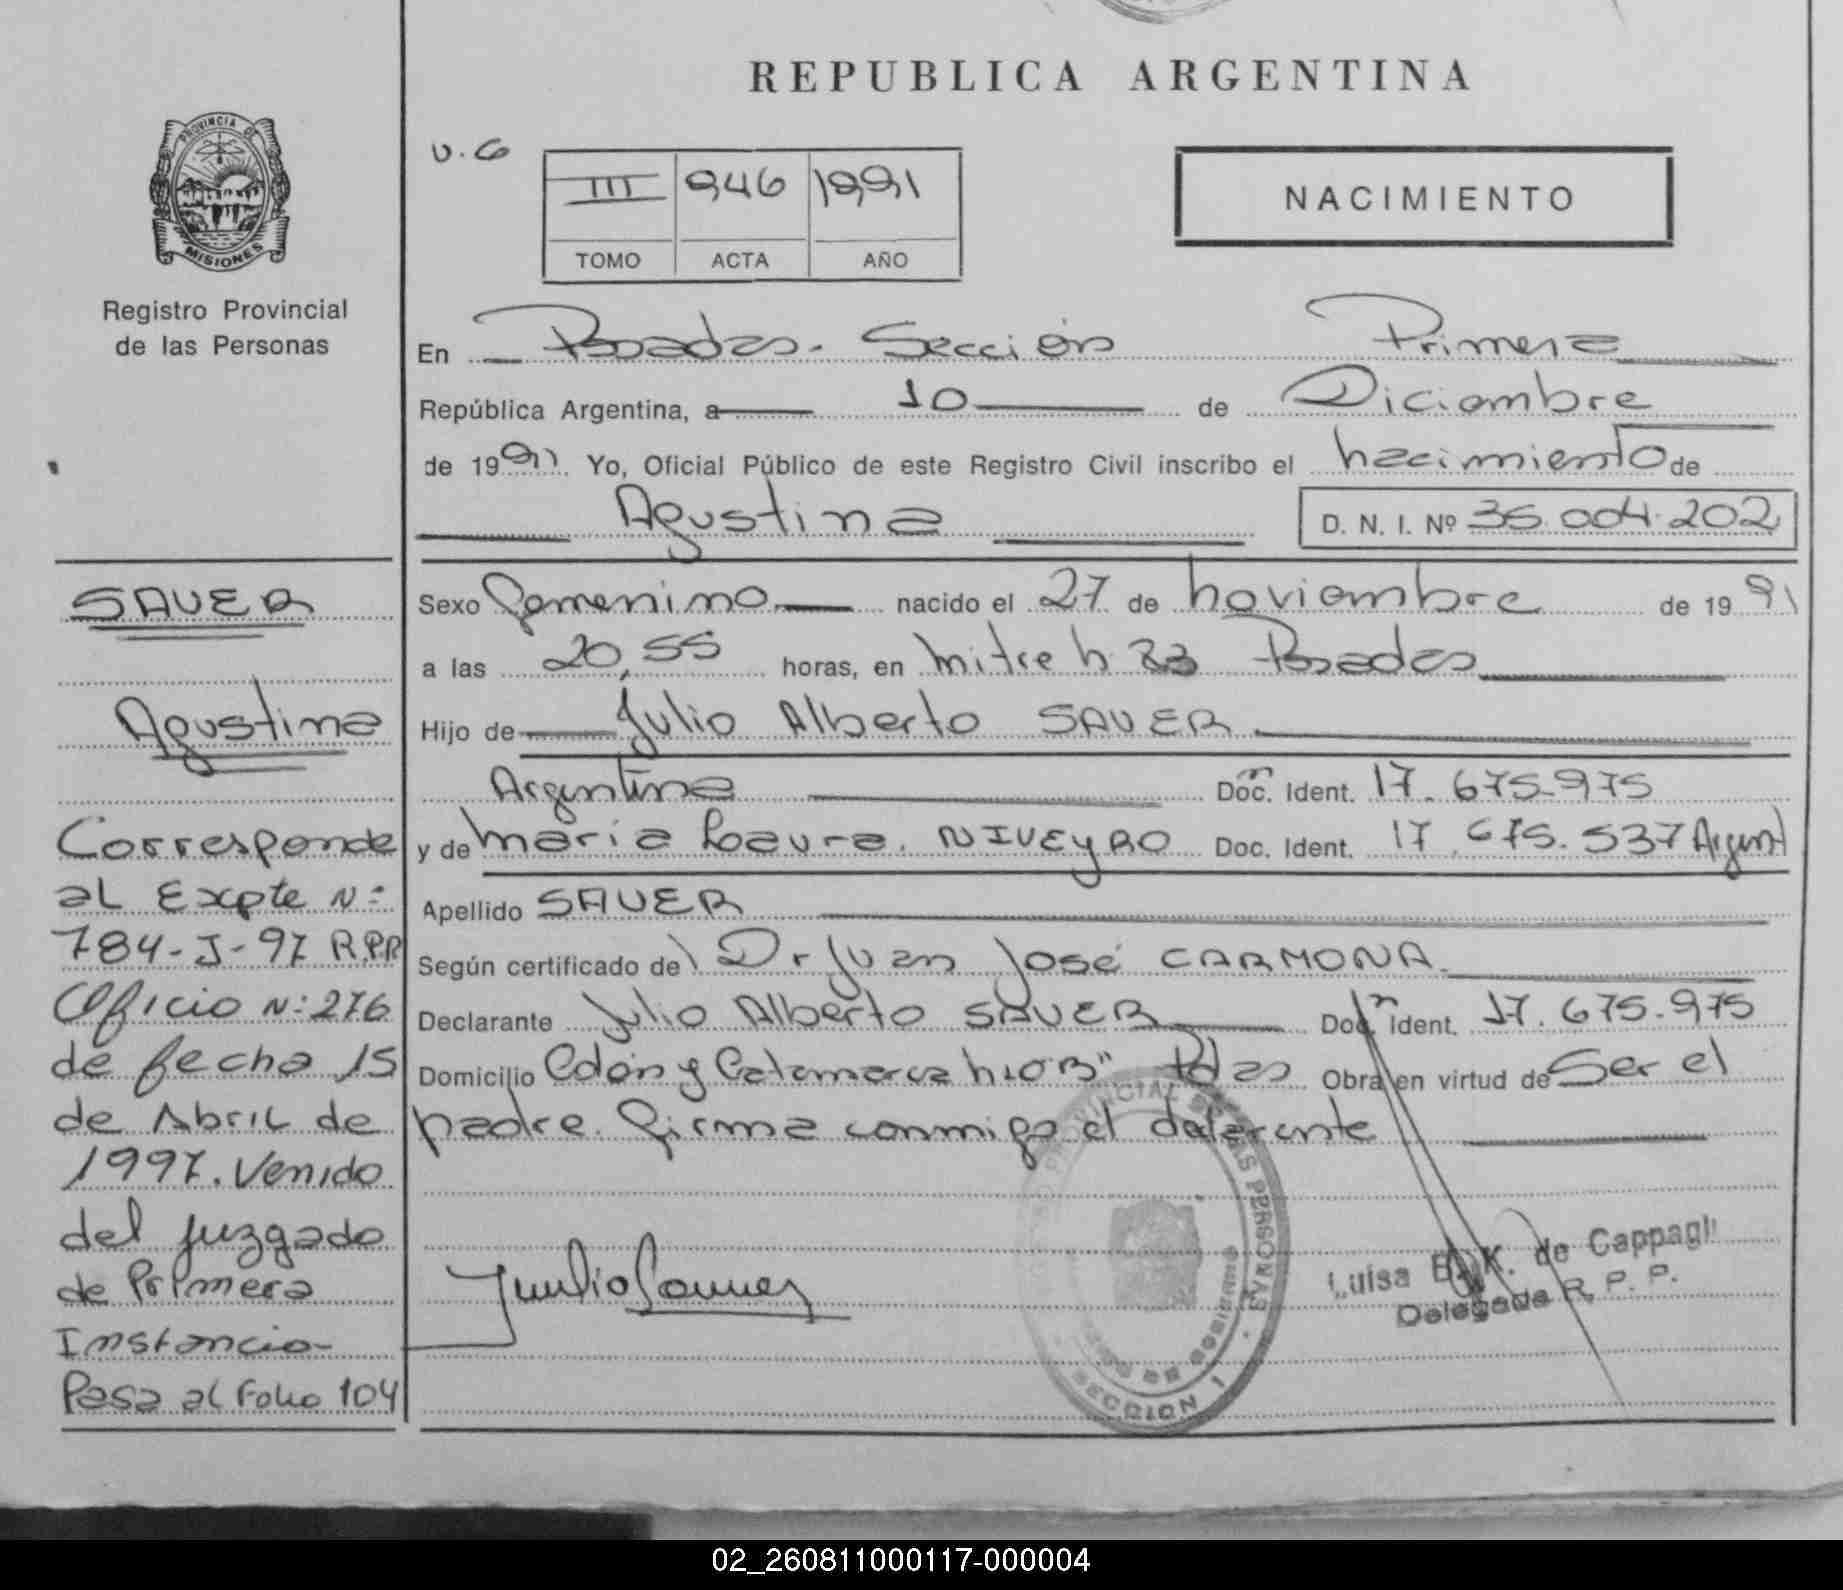 REPUBLICA ARGENTINA
PROVINCIA DE
MISIONES
Registro Provincial
de las Personas
v. G
III 946 1991
TOMO ACTA AÑO
NACIMIENTO
En Posadas. Sección Primera
República Argentina, a 10 de Diciembre
de 1991. Yo, Oficial Público de este Registro Civil inscribo el nacimiento de
Agustina
D. N. I. Nº 36.004.202
SAUER
Agustina
Corresponde
al Expte N:
784-J-97 R.P.P
Oficio N:276
de fecha 15
de Abril de
1997. Venido
del Juzgado
de Primera
Instancia
Pasa al Folio 104
Sexo femenino nacido el 27 de noviembre de 1991
a las 20,55 horas, en mitre n 23 Posadas
Hijo de Julio Alberto SAUER
Argentina Doc. Ident. 17.675.975
y de maria Laura. NIVEYRO Doc. Ident. 17.675.537 Argent
Apellido SAUER
Según certificado de Dr Juan José CARMONA
Declarante Julio Alberto SAUER Doc. Ident. 17.675.975
Domicilio Colón y Catamarca n 10 "B" Pdas Obra en virtud de Ser el
padre. firma conmigo el declarante
PROVINCIAL DE LAS PERSONAS
SECCION 1
Luisa E. K. de Cappagli
Delegada R. P. P.
02_260811000117-000004